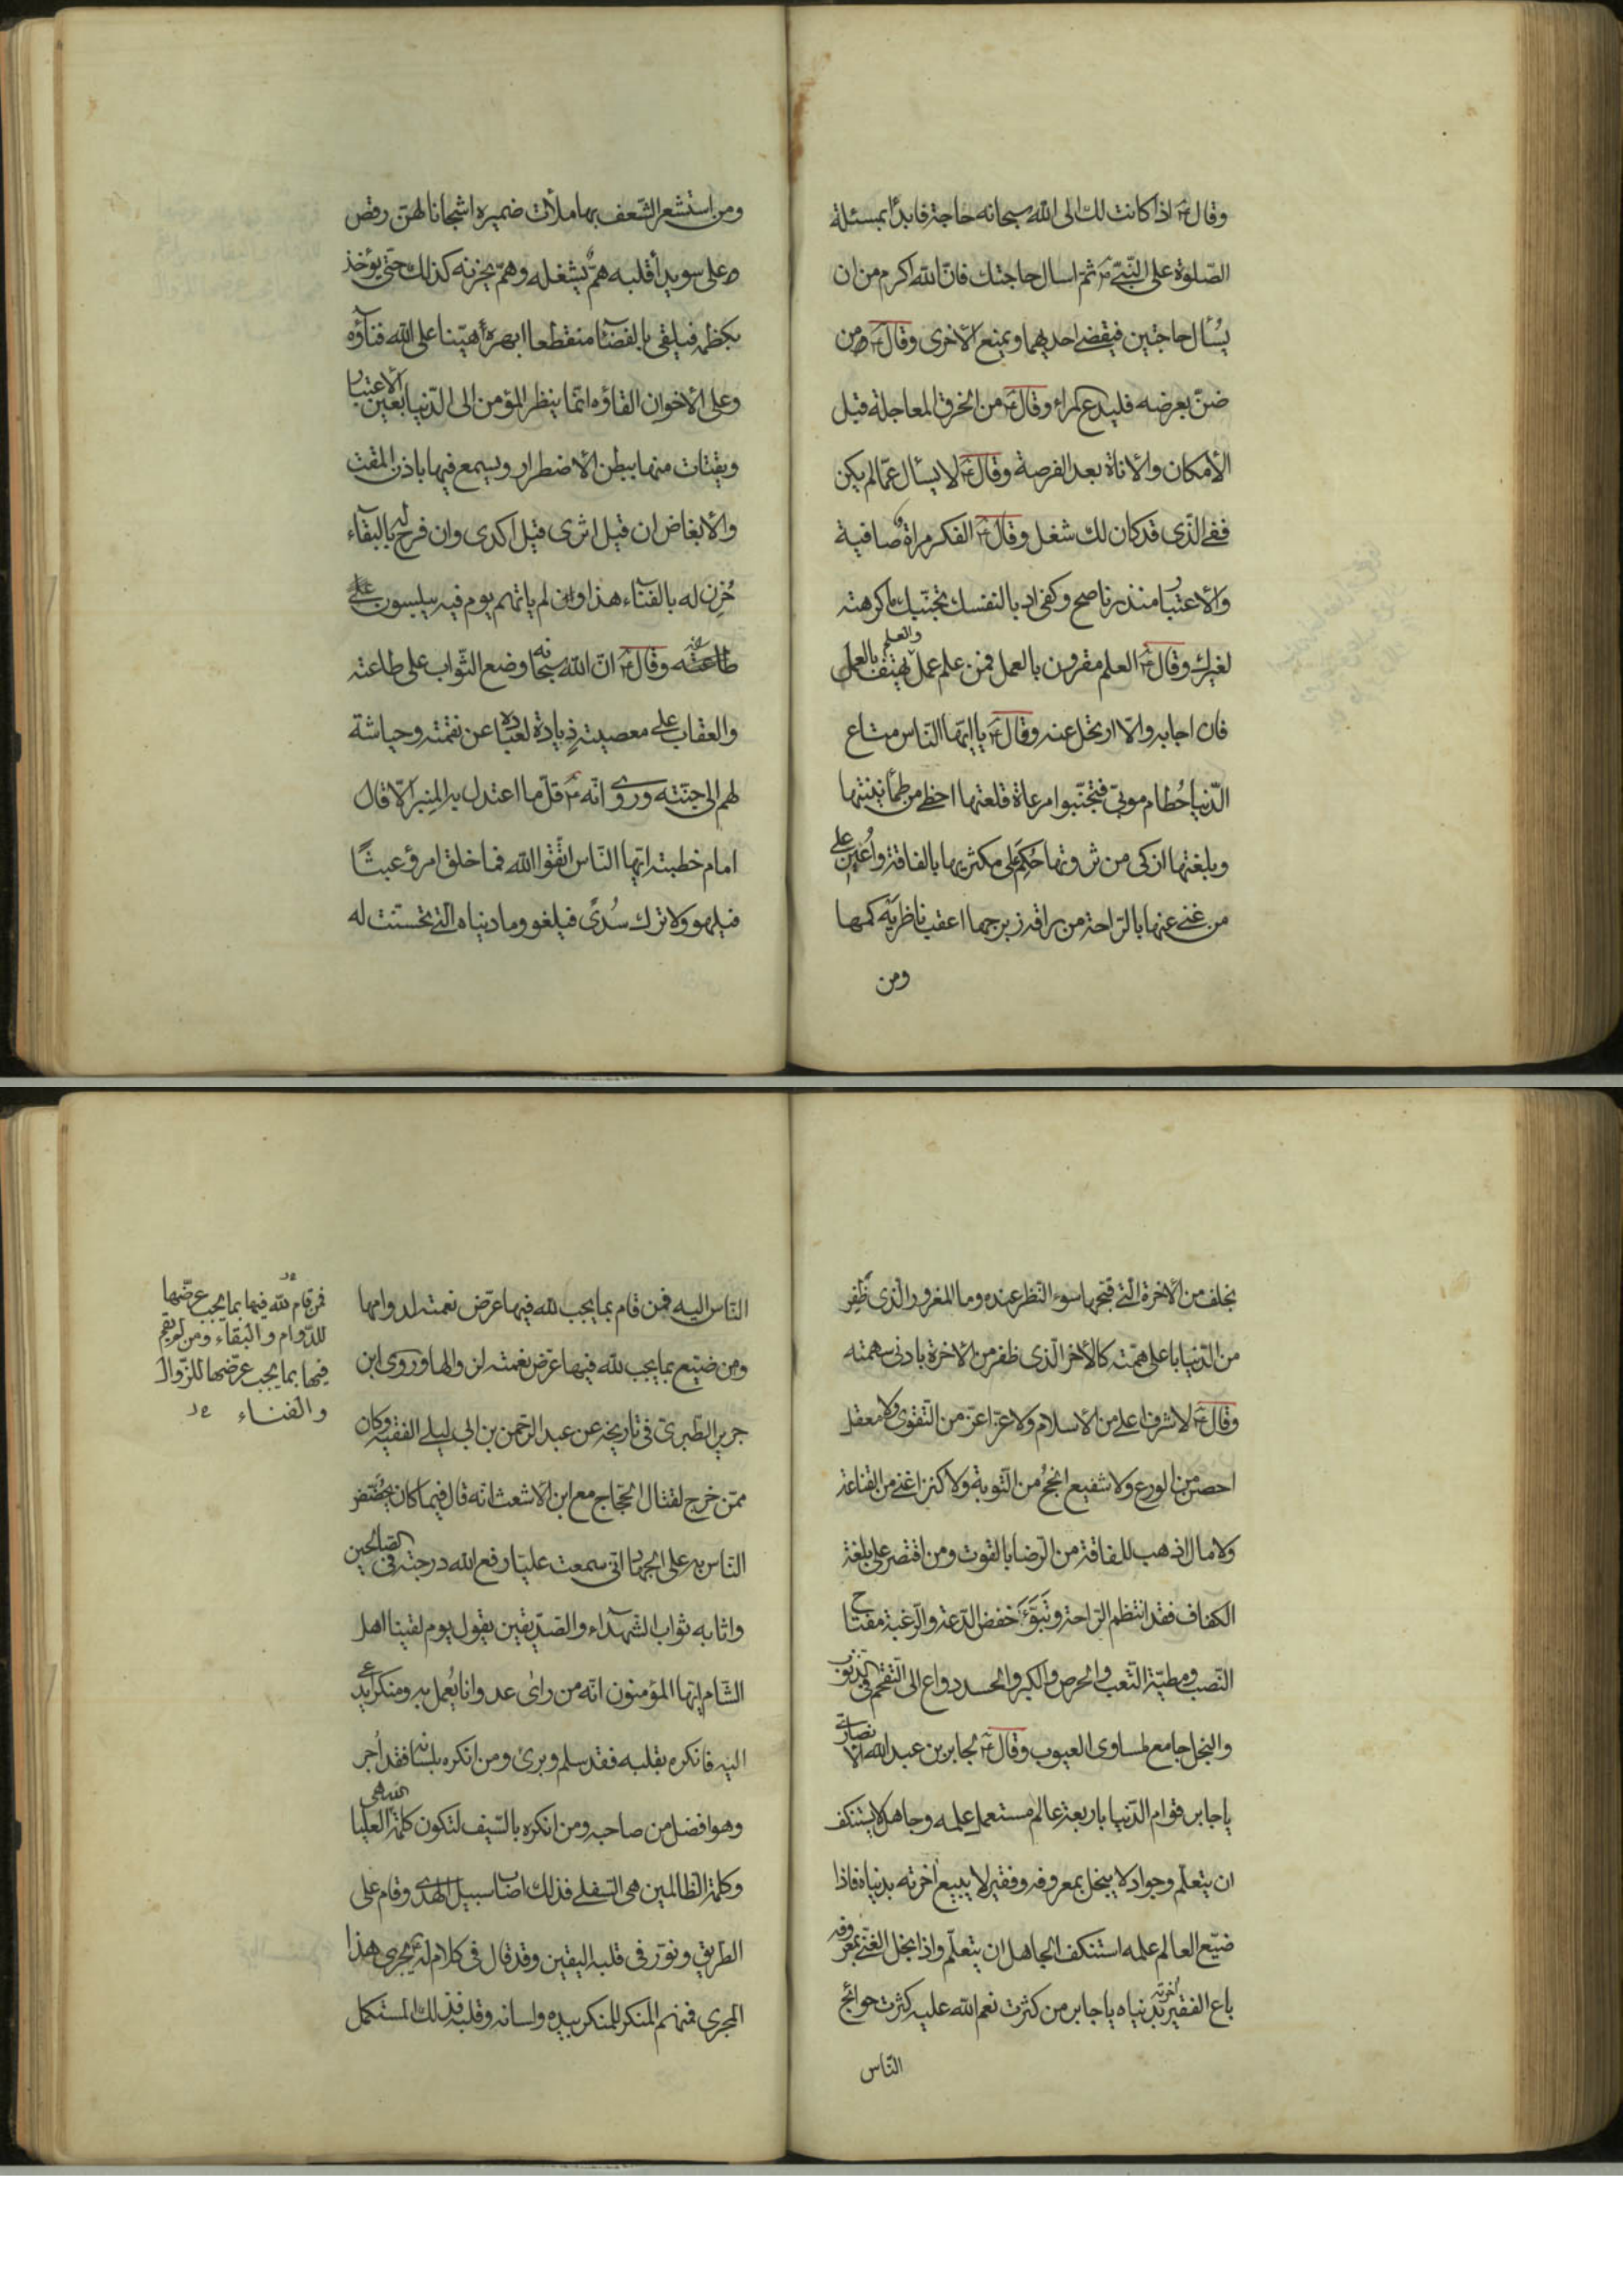 وقال ع اذا كانت لك الى الله سبحانه حاجة فابدأ بمسئلة
الصّلوة على النّبيّ ص ثم اسال حاجتك فانّ الله اكرم من ان
يُسأل حاجتين فيقضى احديهما ويمنع الاخرى وقال ع من
ضنّ بعرضه فليدع المراء وقال ع من الخرق المعاجلة قبل
الامكان والاناة بعد الفرصة وقال ع لا يسأل عمّا لم يكن
ففى الّذى قد كان لك شغل وقال ع الفكر مراة صافية
والاعتبار منذر ناصح وكفى ادبا لنفسك تجنّبك ما كرهته
لغيرك وقال ع العلم مقرون بالعمل فمن علم عمل والعلم يهتف بالعمل
فان اجابه والّا ارتحل عنه وقال ع يا ايّها النّاس متاع
الدّنيا حُطام موبئ فتجنّبوا مرعاة قلعتها احظى من طمأنينتها
وبلغتها ازكى من ثروتها حُكِم على مكثريها بالفاقة واُعين على
من غنى عنها بالرّاحة من راقه زبرجها اعقب ناظريه كمها
ومن
ومن استشعر الشّعف بها ملأت ضميره اشجانا لهنّ رقص
على سويدأ قلبه همّ يشغله وهمّ يحزنه كذلك حتّى يؤخذ
بكظمه فيلقى بالفضآء منقطعا ابهره أهيّنا على الله فنآؤه
وعلى الاخوان القاؤه انّما ينظر المؤمن الى الدّنيا بعين الاعتبار
ويقتات منها ببطن الاضطرار ويسمع فيها باذن المقت
والابغاض ان قيل اثرى قيل اكدى وان فرح له بالبقآء
حُزِن له بالفنآء هذا وان لم ياتهم يوم فيه يبلسون
طاعته وقال ع انّ الله سبحانه وضع الثّواب على طاعته
والعقاب على معصيته ذيادة لعباده عن نقمته وحياشة
لهم الى جنّته وروى انّه ع قلّ ما اعتدل به المِنبر الّا قال
امام خطبته ايّها النّاس اتّقوا الله فما خلق امرؤ عبثًا
فيلهو ولا ترك سُدًى فيلغو وما دنياه الّتى تحسّنت له
بخلف من الاخرة الّتى قبّحها سوء النّظر عنده وما المغرور الّذى ظفِر
من الدّنيا باعلى همّته كالاخر الّذى ظفر من الاخرة بادنى سهمته
وقال ع لا شرف اعلى من الاسلام ولا عزّ اعزّ من التّقوى ولا معقل
احصن من الورع ولا شفيع انجحُ من التّوبة ولا كنز اغنى من القناعة
ولا مال اذهب للفاقة من الرّضا بالقوت ومن اقتصر على بلغة
الكفاف فقد انتظم الرّاحة وتَبَوَّءَ خفض الدّعة والرّغبة مفتاح
النّصب ومطيّة التّعب والحرص والكبر والحسد دواع الى التّقحّم فى الذّنوب
والبخل جامع لمساوى العيوب وقال ع لجابر بن عبد الله الانصارىّ
يا جابر قوام الدّنيا باربعة عالم مستعمل علمه وجاهل لا يستنكف
ان يتعلّم وجواد لا يبخل بمعروفه وفقير لا يبيع اخرته بدنياه فاذا
ضيّع العالم علمه استنكف الجاهل ان يتعلّم واذا بخل الغنىّ بمعروفه
باع الفقير اخرته بدنياه يا جابر من كثرت نعم الله عليه كثرت حوائج
النّاس
النّاس اليه فمن قام بما يجب لله فيها عرّض نعمته لدوامها
ومن ضيّع بما يجب لله فيها عرّض نعمته لزوالها وروى ابن
جرير الطّبرىّ فى تاريخه عن عبد الرّحمن بن ابى ليلى الفقيه وكان
ممّن خرج لقتال الحجّاج مع ابن الاشعث انّه قال فيما كان يحضّض
النّاس به على الجهاد انّى سمعت عليّا رفع الله درجته فى الصّالحين
واثابه ثواب الشّهدآء والصّدّيقين يقول يوم لقينا اهل
الشّام ايّها المؤمنون انّه من راى عدوانا يُعمل به ومنكرا يدعى
اليه فانكره بقلبه فقد سلم وبرئ ومن انكره بلسانه فقد اُجر
وهو افضل من صاحبه ومن انكره بالسّيف لتكون كلمة الله هى العليا
وكلمة الظّالمين هى السّفلى فذلك اصاب سبيل الهدى وقام على
الطّريق ونوّر فى قلبه اليقين وقد قال فى كلام له يجرى هذا
المجرى فمنهم المنكر للمنكر بيده ولسانه وقلبه فذلك المستكمل
فمن قام لله فيها بما يجب عرّضها
للدّوام والبقاء ومن لم يقم
فيها بما يجب عرّضها للزّوال
والفناء